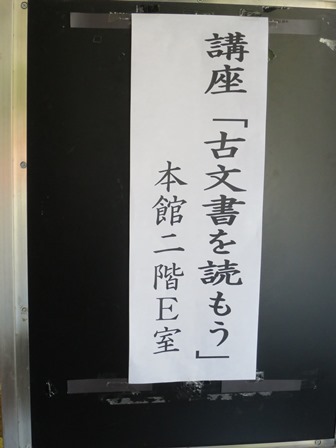 講座「古文書を読もう」
本館二階E室